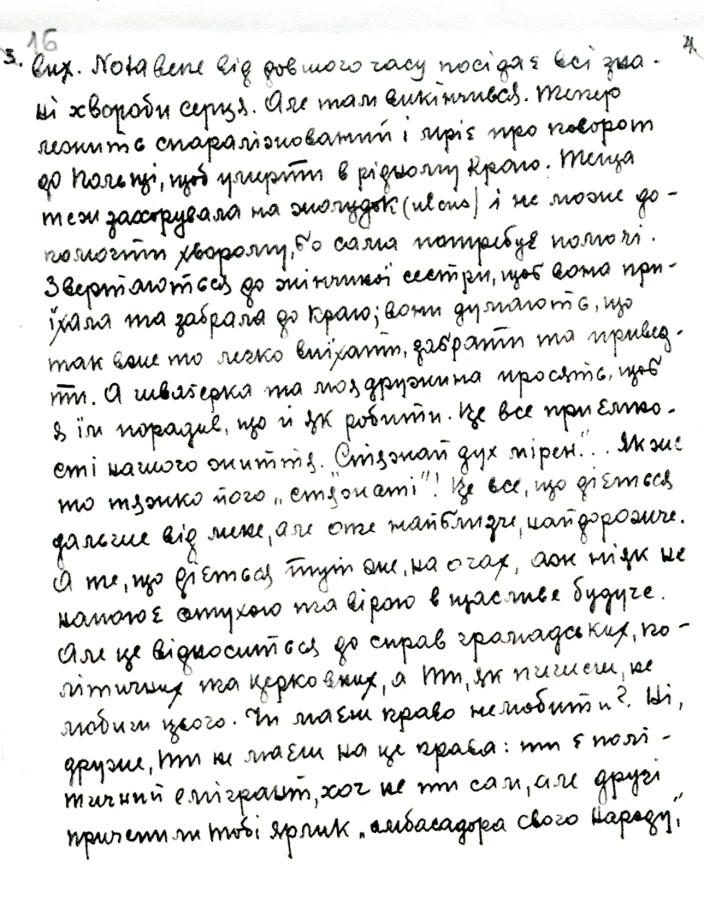 16
3.
4
вих. Nota bene від довшого часу посідає всі зна-
ні хвороби серця. Але там викінчився. Тепер
лежить спаралізований і мріє про поворот
до Польщі, щоб умерти в рідному краю. Теща
теж захорувала на жолудок (ulcus) і не може до-
помогти хворому, бо сама потребує помочі.
Звертаються до жінчиної сестри, щоб вона при-
їхала та забрала до краю; вони думають, що
так воно то легко виїхати, забрати та привез-
ти. А швагерка та моя дружина просять, щоб
я їм порадив, що й як робити. Це все приємно-
сті нашого життя. "Стяжай дух мірен"... Як же
то тяжко його "стяжаті"! Це все, що діється
дальше від мене, але оте найближче, найдорожче.
А те, що діється тут же, на очах, аж ніяк не
напоює отухою та вірою в щасливе будуче.
Але це відноситься до справ громадських, по-
літичних та церковних, а Ти, як пишеш, не
любиш цього. Чи маєш право не любити? Ні,
друже, Ти не маєш на це права: ти є полі-
тичний емігрант, хоч не ти сам, але другі
причепили Тобі ярлик "амбасадора свого народу",